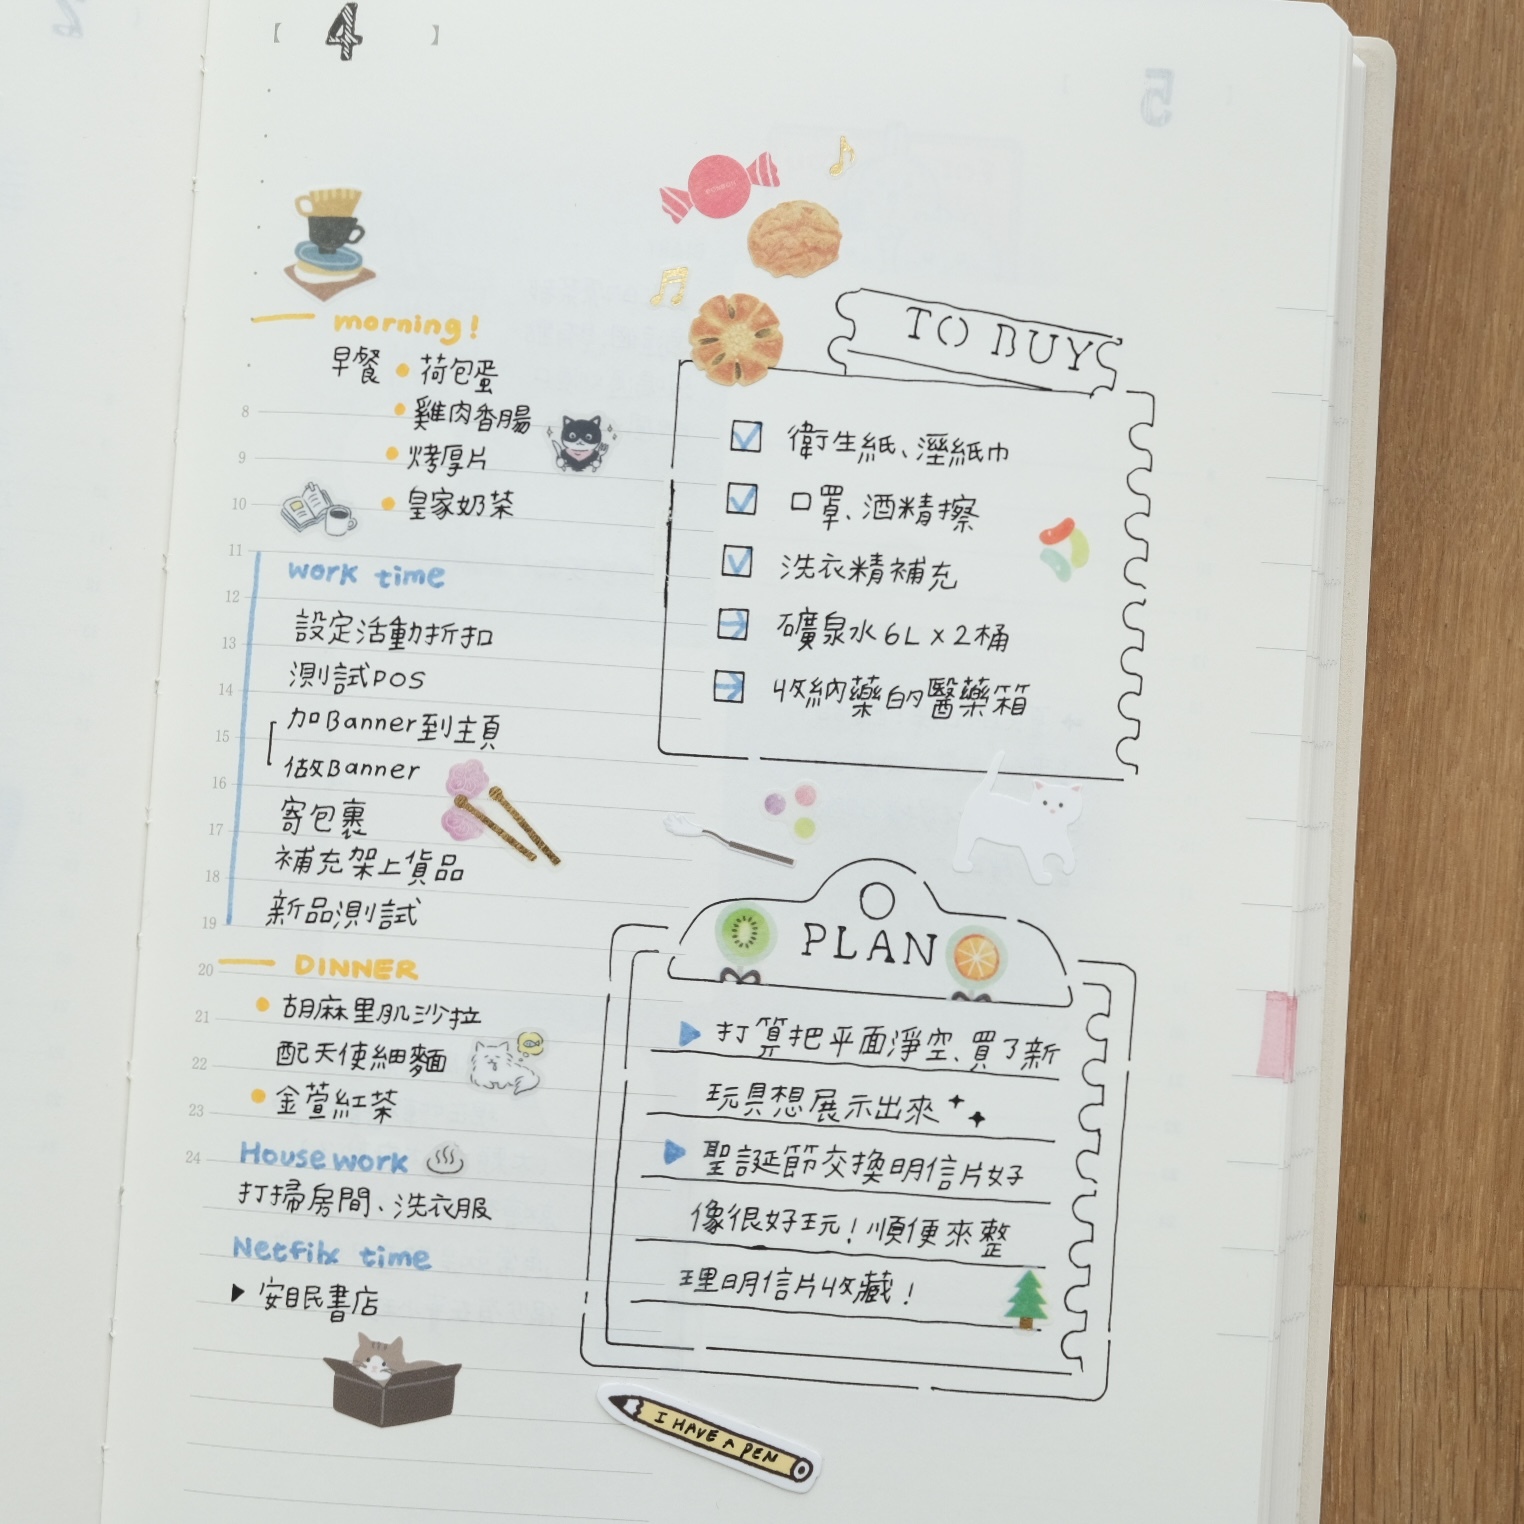 【 4 】
morning!
早餐 • 荷包蛋
• 雞肉香腸
• 烤厚片
• 皇家奶茶
8
9
10
11
12
13
14
15
16
17
18
19
20
21
22
23
24
work time
設定活動折扣
測試POS
加Banner到主頁
做Banner
寄包裹
補充架上貨品
新品測試
DINNER
• 胡麻里肌沙拉
配天使細麵
• 金萱紅茶
Housework
打掃房間、洗衣服
Netflix time
▶ 安眠書店
TO BUY
☑ 衛生紙、溼紙巾
☑ 口罩、酒精擦
☑ 洗衣精補充
→ 礦泉水6L×2桶
→ 收納藥的醫藥箱
PLAN
▶ 打算把平面淨空、買了新
玩具想展示出來
▶ 聖誕節交換明信片好
像很好玩!順便來整
理明信片收藏!
I HAVE A PEN
5